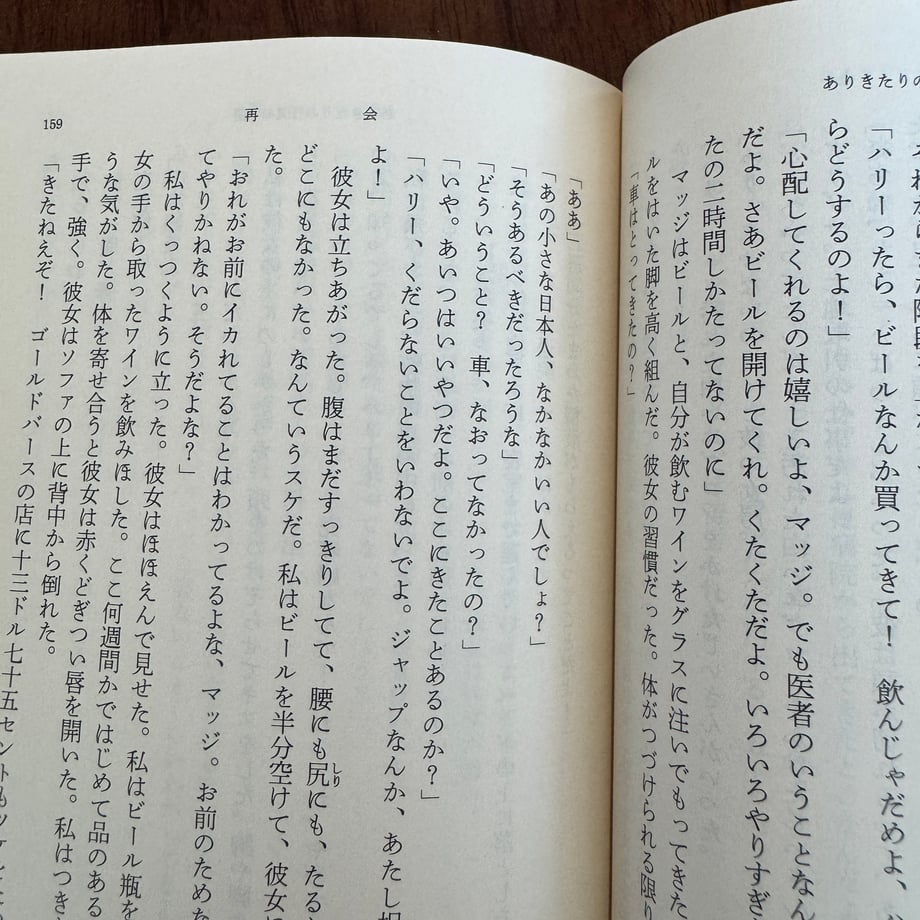 ありきたりの
「ハリーったら、ビールなんか買ってきて！　飲んじゃだめよ、
らどうするのよ！」
「心配してくれるのは嬉しいよ、マッジ。でも医者のいうことなん
だよ。さあビールを開けてくれ。くたくただよ。いろいろやりすぎ
たの二時間しかたってないのに」
マッジはビールと、自分が飲むワインをグラスに注いでもってきた
ルをはいた脚を高く組んだ。彼女の習慣だった。体がつづけられる限り
「車はとってきたの？」
再会
159
「ああ」
「あの小さな日本人、なかなかいい人でしょ？」
「そうあるべきだったろうな」
「どういうこと？　車、なおってなかったの？」
「いや。あいつはいいやつだよ。ここにきたことあるのか？」
「ハリー、くだらないことをいわないでよ。ジャップなんか、あたし
よ！」
彼女は立ちあがった。腹はまだすっきりしてて、腰にも尻にも、たる
しり
どこにもなかった。なんていうスケだ。私はビールを半分空けて、彼女に
た。
「おれがお前にイカれてることはわかってるよな、マッジ。お前のためな
てやりかねない。そうだよな？」
私はくっつくように立った。彼女はほほえんで見せた。私はビール瓶を
女の手から取ったワインを飲みほした。ここ何週間かではじめて品のある
うな気がした。体を寄せ合うと彼女は赤くどぎつい唇を開いた。私はつき
手で、強く。彼女はソファの上に背中から倒れた。
「きたねえぞ！　ゴールドバースの店に十三ドル七十五セント